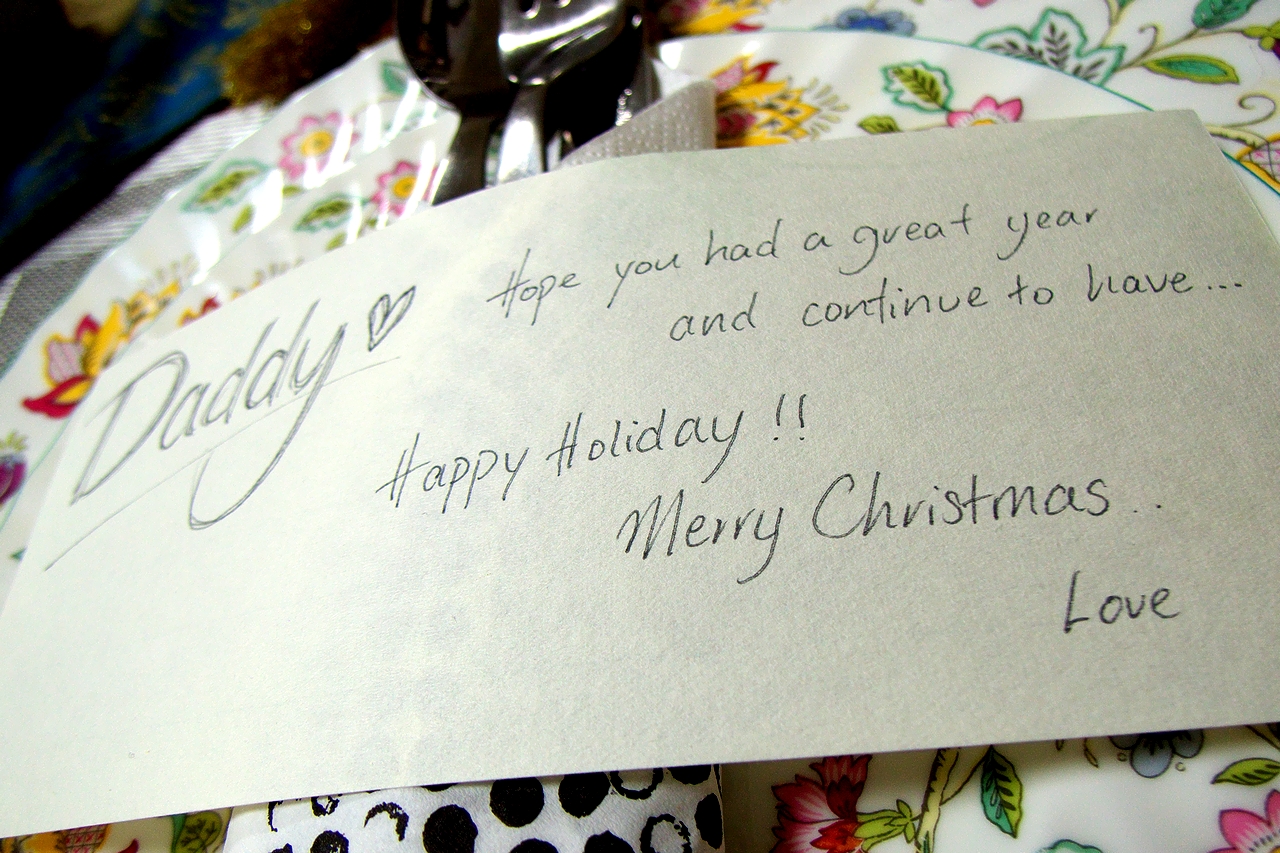 Daddy ♡
Hope you had a great year
and continue to have...
Happy Holiday !!
Merry Christmas..
Love